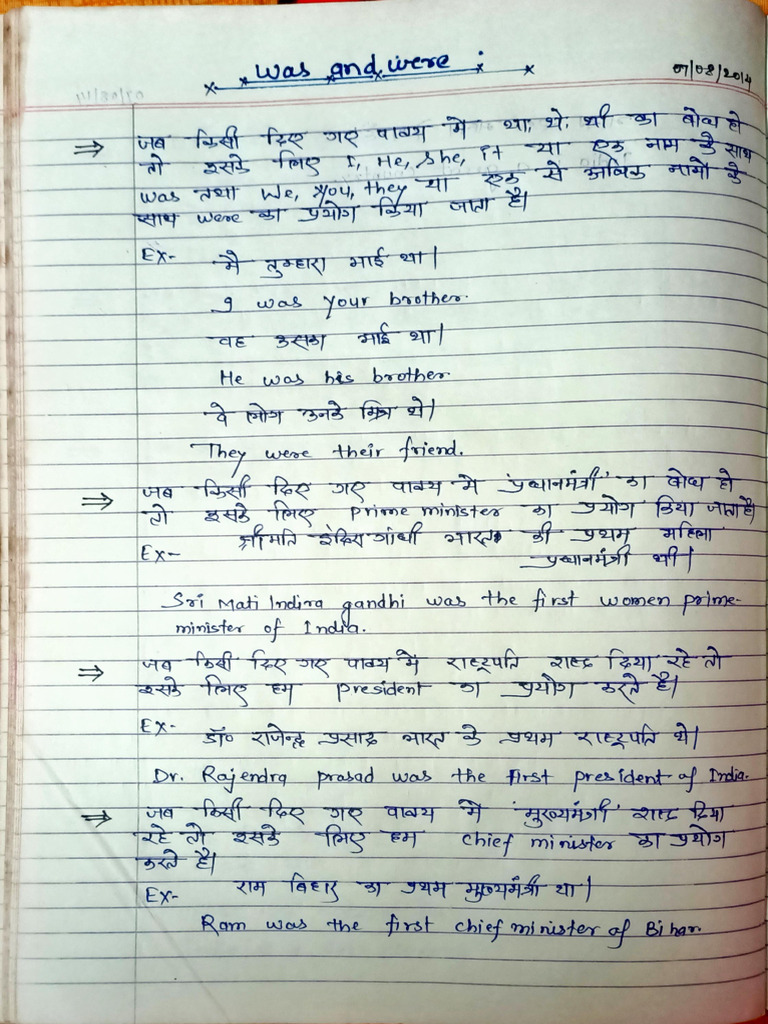 was and were :
07/08/2014
⇒ जब किसी दिए गए वाक्य में था, थे, थी का बोध हो
तो इसके लिए I, He, She, it या एक नाम के साथ
was तथा We, you, they या एक से अधिक नामों के
साथ were का प्रयोग किया जाता है।
Ex- मै तुम्हारा भाई था।
I was your brother.
वह उसका भाई था।
He was his brother
वे लोग उनके मित्र थे।
They were their friend.
⇒ जब किसी दिए गए वाक्य में 'प्रधानमंत्री' का बोध हो
तो इसके लिए prime minister का प्रयोग किया जाता है।
Ex- श्रीमति इंदिरा गांधी भारत की प्रथम महिला
प्रधानमंत्री थी।
Sri Mati Indira gandhi was the first women prime-
minister of India.
⇒ जब किसी दिए गए वाक्य में राष्ट्रपति शब्द दिया रहे तो
इसके लिए हम president का प्रयोग करते है।
Ex- डॉ० राजेन्द्र प्रसाद भारत के प्रथम राष्ट्रपति थे।
Dr. Rajendra prasad was the first president of India.
⇒ जब किसी दिए गए वाक्य में 'मुख्यमंत्री' शब्द दिया
रहे तो इसके लिए हम chief minister का प्रयोग
करते है।
Ex- राम बिहार का प्रथम मुख्यमंत्री था।
Ram was the first chief minister of Bihar.